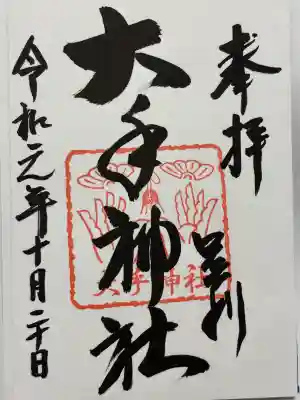 奉拝
大手神社
令和元年十月二十日
大手神社